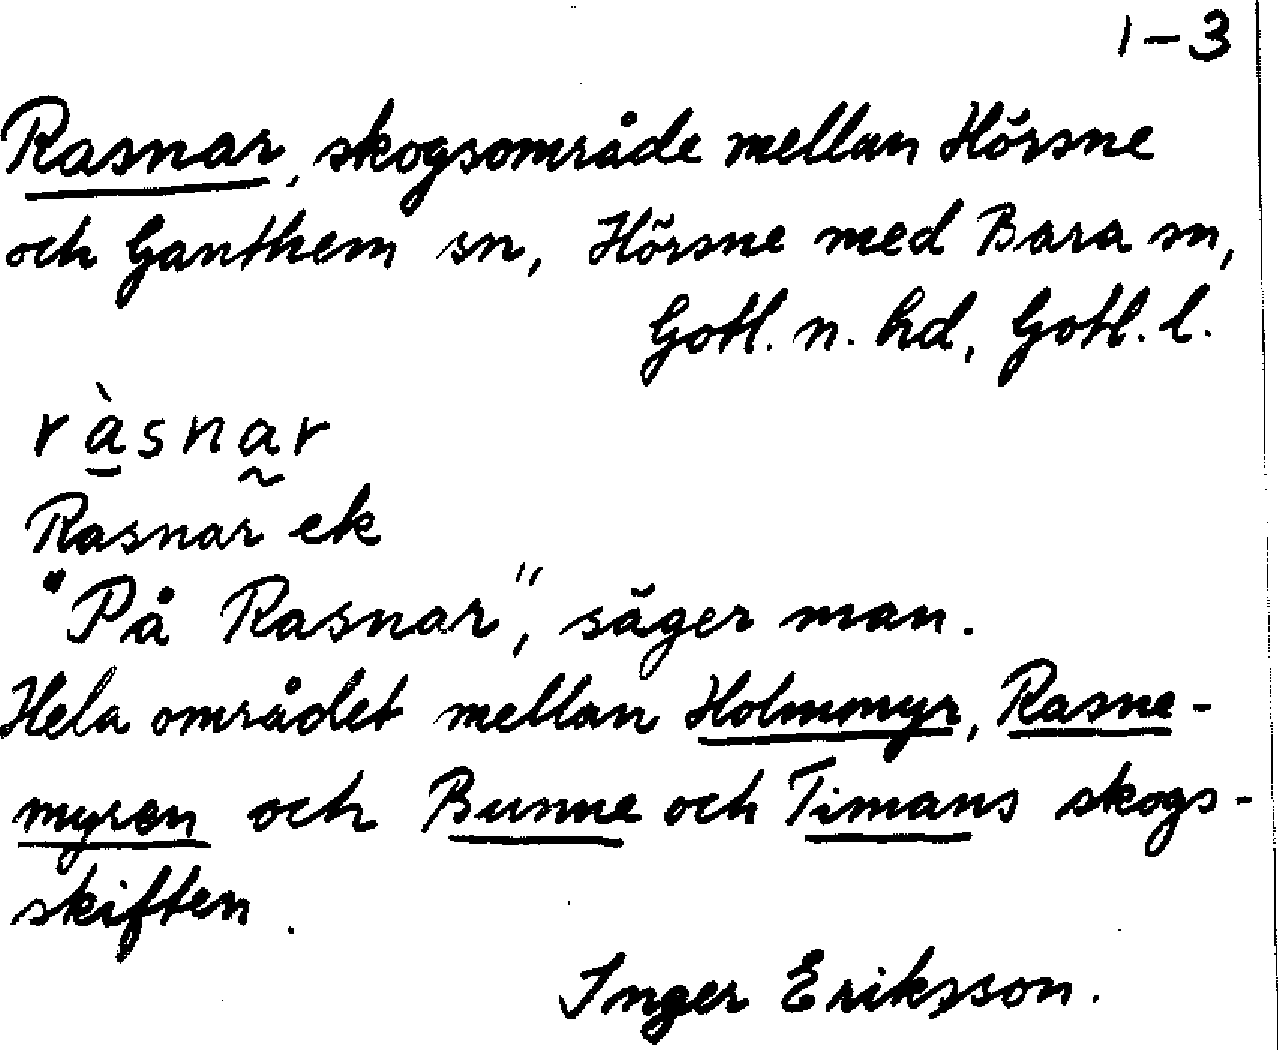 1-3
Rasnar, skogsområde mellan Hörsne
och Ganthem sn, Hörsne med Bara sn,
Gotl. n. hd, Gotl. l.
rà̱sna̰r
Rasnar ek
"På Rasnar", säger man.
Hela området mellan Holmmyr, Rasne-
myren och Bunne och Timans skogs-
skiften.
Inger Eriksson.